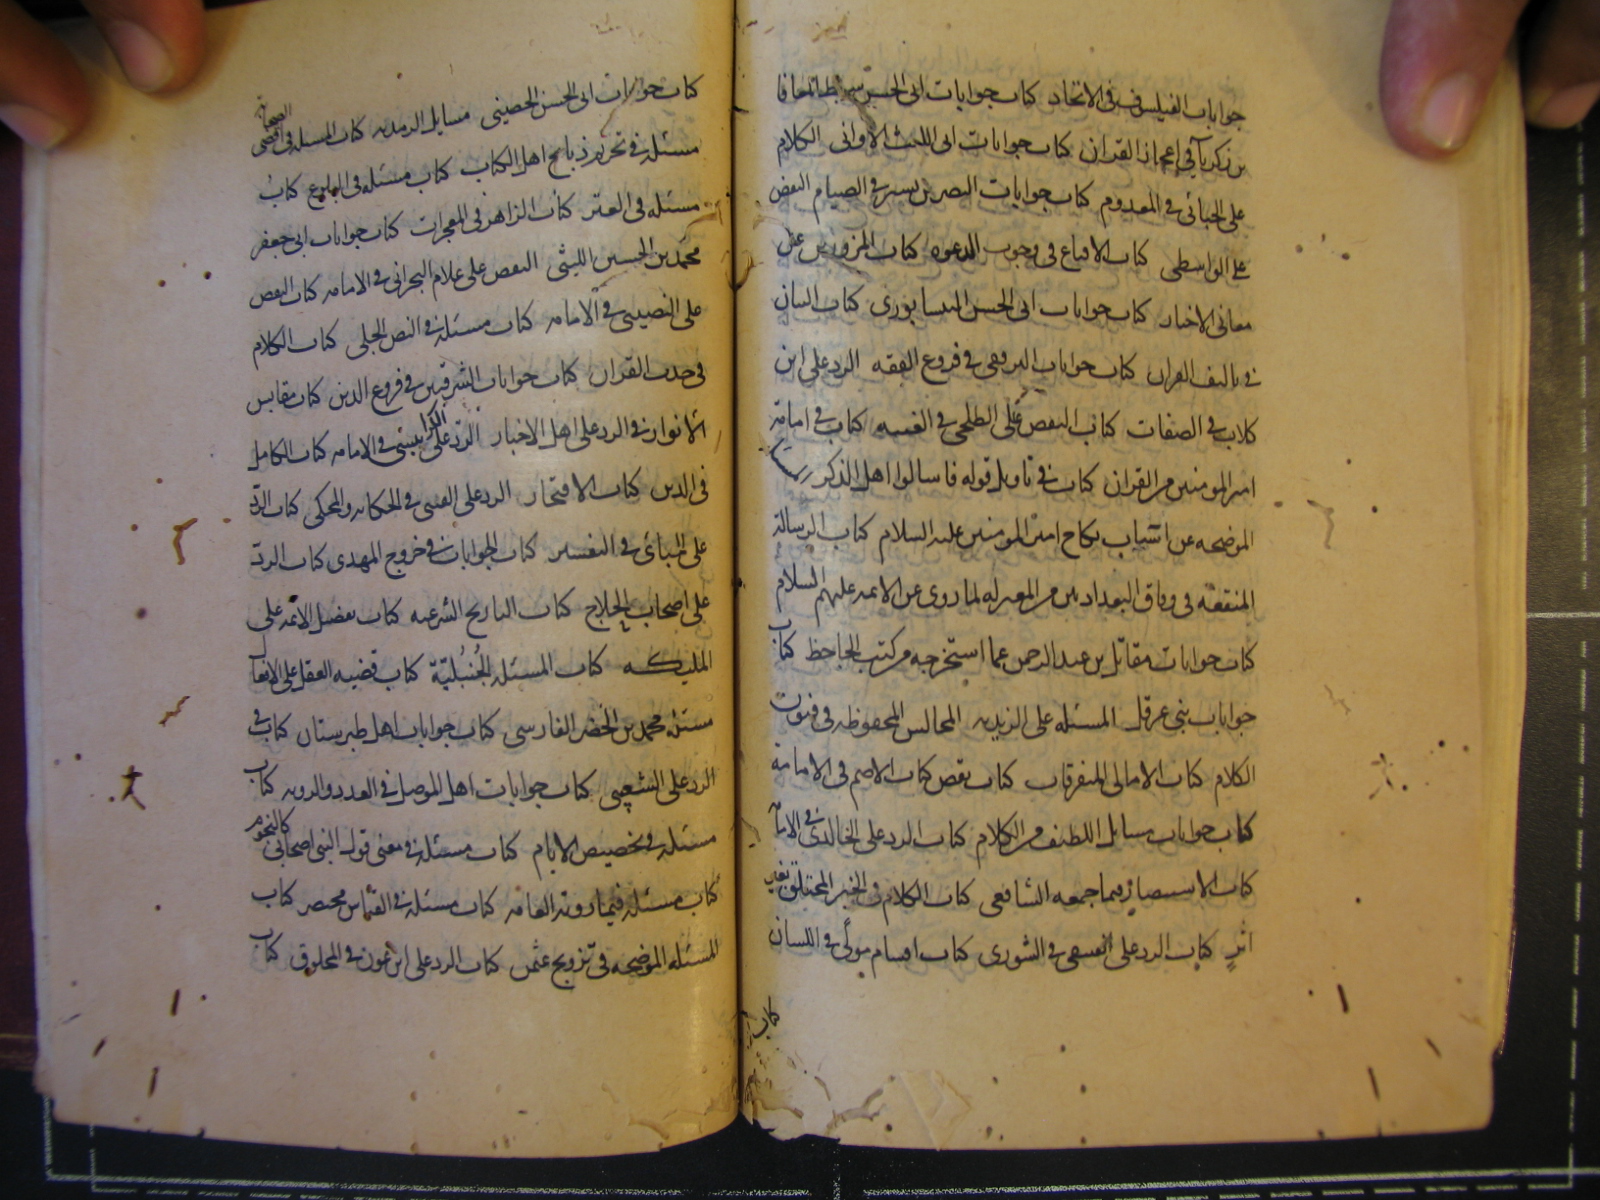 جوابات الفيلسوف في الاتحاد كتاب جوابات ابى الحسن سبط المعافا
بن زكريا في اعجاز القران كتاب جوابات ابى الليث الاوانى الكلام
على الجبائى في المعدوم كتاب جوابات النصر بن بسير في الصيام النقض
على الواسطى كتاب الاقناع في وجوب الدعوه كتاب المزورين عن
معانى الاخبار كتاب جوابات ابى الحسن النيسابورى كتاب البيان
في تاليف القران كتاب جوابات البرقعى في فروع الفقه الرد على ابن
كلاب في الصفات كتاب النقض على الطلحى في الغيبه كتاب في امامة
امير المومنين من القران كتاب في تاويل قوله فاسالوا اهل الذكر
الموضحه عن اسباب نكاح امير المومنين عليه السلام كتاب الرسالة
المنقعه في وفاق البغداديين من المعتزله لما روى عن الائمه عليهم السلام
كتاب جوابات مقاتل بن عبد الرحمن عما استخرجه من كتب الجاحظ كتاب
جوابات بنى عرقل المسئله على الزيديه المجالس المحفوظه في فنون
الكلام كتاب الامالى المتفرقات كتاب نقض كتاب الاصم في الامامة
كتاب جوابات مسايل اللطيف من الكلام كتاب الرد على الخالدى في الامامة
كتاب الاستبصار فيما جمعه الشافعى كتاب الكلام في الخبر المختلق بغير
اثر كتاب الرد على العتيقى في الشورى كتاب اقسام مولى في اللسان
كتاب
كتاب جوابات ابى الحسن الحصينى مسايل الزيديه كتاب المسئله في اقضى الصحابة
مسئله في تحريم ذبايح اهل الكتاب كتاب مسئله في البلوغ كتاب
مسئله في العتره كتاب الزاهر في المعجزات كتاب جوابات ابى جعفر
محمد بن الحسين الليثى النقض على غلام البحرانى في الامامه كتاب النقض
على النصيبى في الامامه كتاب مسئله في النص الجلى كتاب الكلام
في حدث القران كتاب جوابات الشرقيين في فروع الدين كتاب مقابس
الانوار في الرد على اهل الاخبار الرد على الكرابيسى في الامامه كتاب الكامل
في الدين كتاب الافتخار الرد على القتبى في الحكايه والمحكى كتاب الرد
على الجبائى في التفسير كتاب الجوابات في خروج المهدى كتاب الرد
على اصحاب الحلاج كتاب التاريخ الشرعيه كتاب تفضيل الائمه على
المليكه كتاب المسئله الجُنبُليّة كتاب قضيه العقل على الافعا
مسئله محمد بن الخضر الفارسى كتاب جوابات اهل طبرستان كتاب في
الرد على الشعبى كتاب جوابات اهل الموصل في العدد والرويه كتاب
مسئله في تخصيص الايام كتاب مسئله في معنى قول النبى اصحابى كالنجوم
كتاب مسئله فيما روته العامه كتاب مسئله في القياس مختصر كتاب
المسئله الموضحه في تزويج عثمن كتاب الرد على ابن عون في المخلوق كتاب